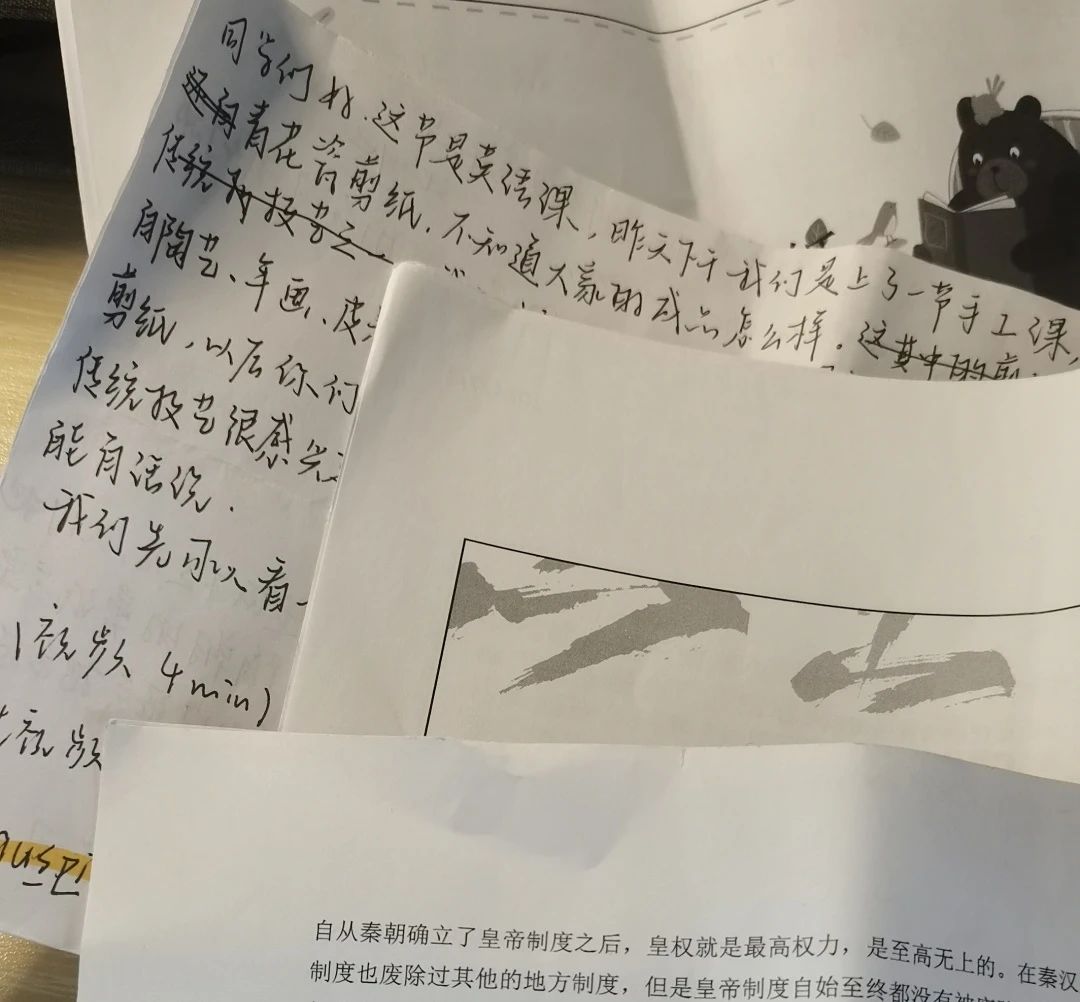 同学们好.这节是英语课,昨天下午我们是上了一节手工课,
青花瓷剪纸.不知道大家的成品怎么样.这其中的剪
传统的技艺之一
有陶艺、年画、皮
剪纸,以后你们
传统技艺很感兴
能有话说.
我们先可以看一
(视频 4min)
视频
自从秦朝确立了皇帝制度之后,皇权就是最高权力,是至高无上的。在秦汉
制度也废除过其他的地方制度,但是皇帝制度自始至终都没有被